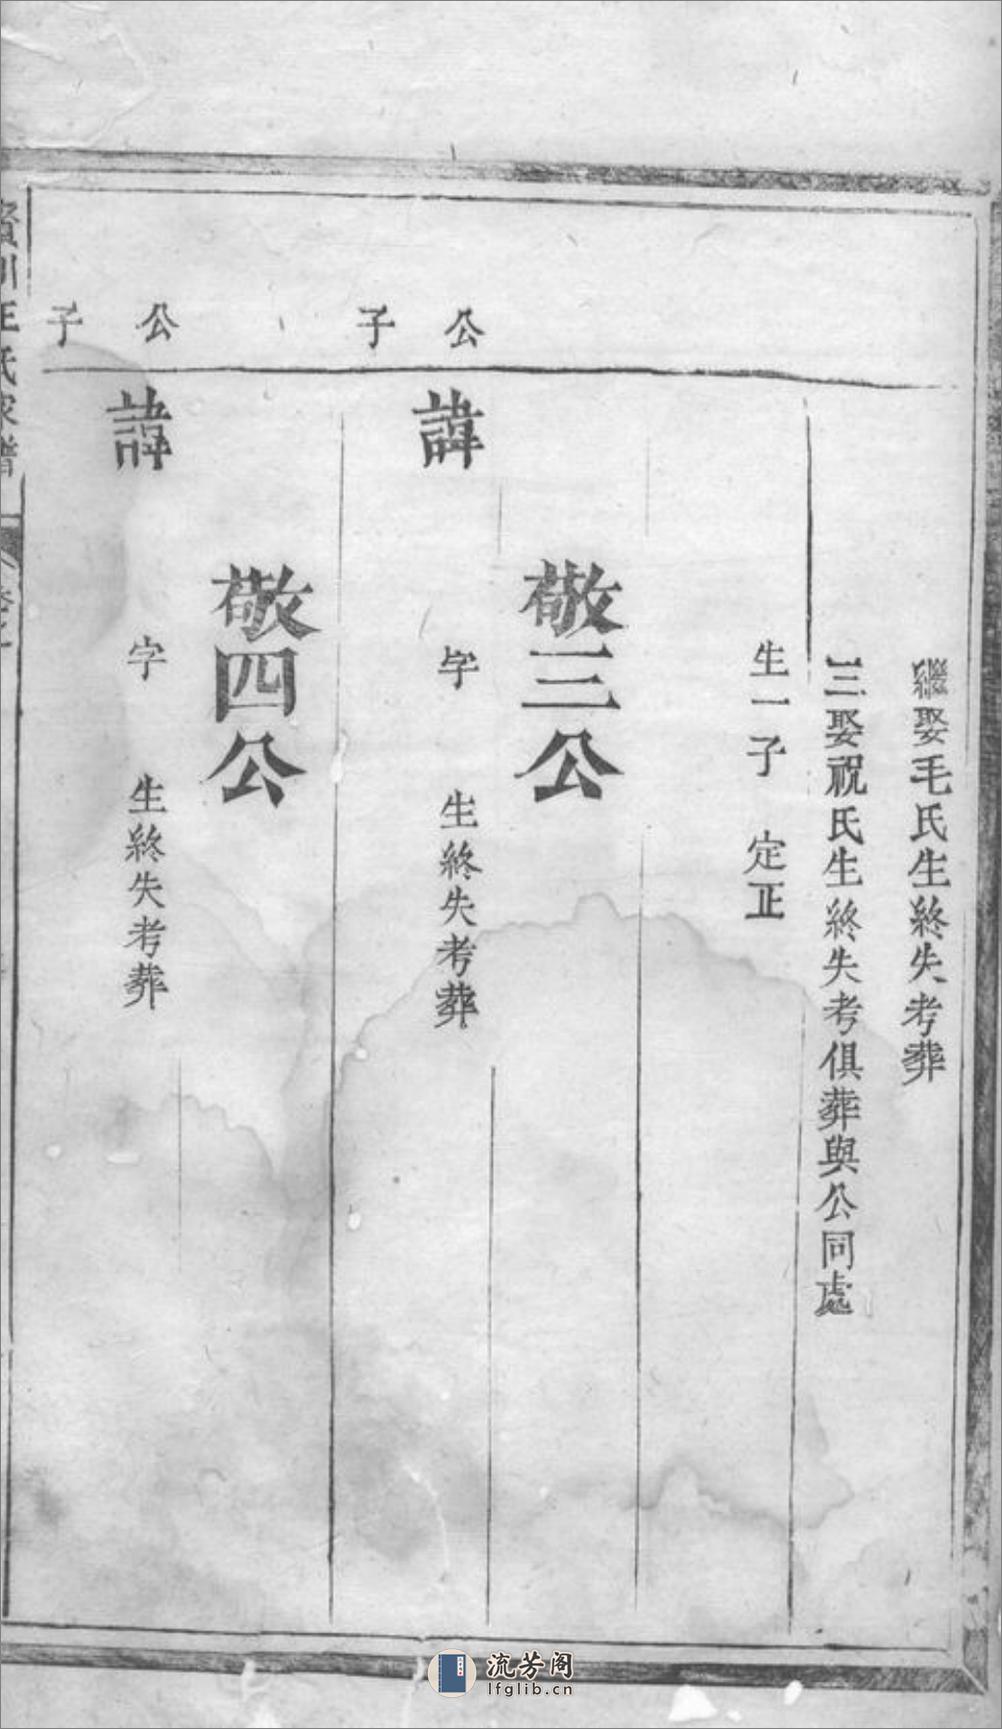 繼娶毛氏生終失考葬
三娶祝氏生終失考俱葬與公同處
生一子　定正
敬三公
公諱　字　生終失考葬
子
敬四公
公諱　字　生終失考葬
子
王氏家譜
流芳阁
lfglib.cn